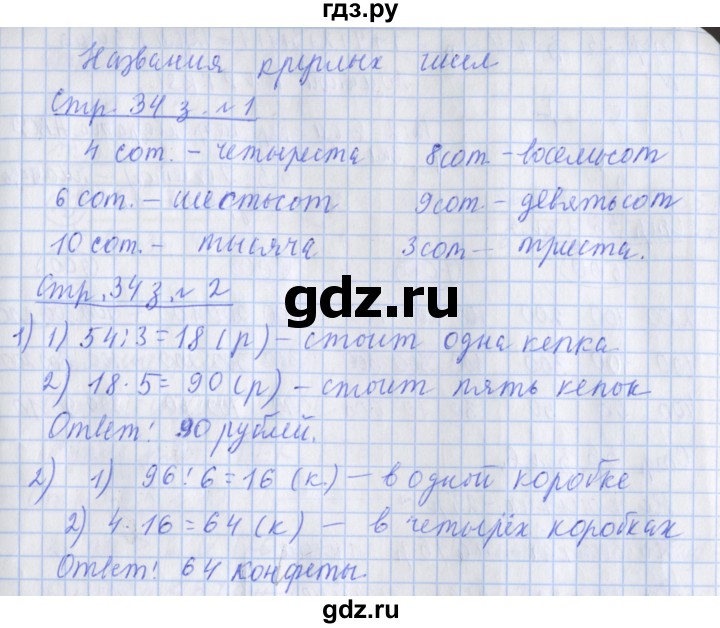 гдз.ру
Названия круглых чисел
Стр. 34 з. №1
4 сот. – четыреста 8сот – восемьсот
6 сот. – шестьсот 9сот – девятьсот
10 сот. – тысяча 3сот – триста.
Стр. 34 з. № 2
gdz.ru
1) 1) 54:3=18 (р) – стоит одна кепка
2) 18·5= 90 (р) – стоит пять кепок
Ответ: 90 рублей.
2) 1) 96:6=16 (к.) – в одной коробке
2) 4·16=64 (к) – в четырёх коробках
Ответ: 64 конфеты.
gdz.ru